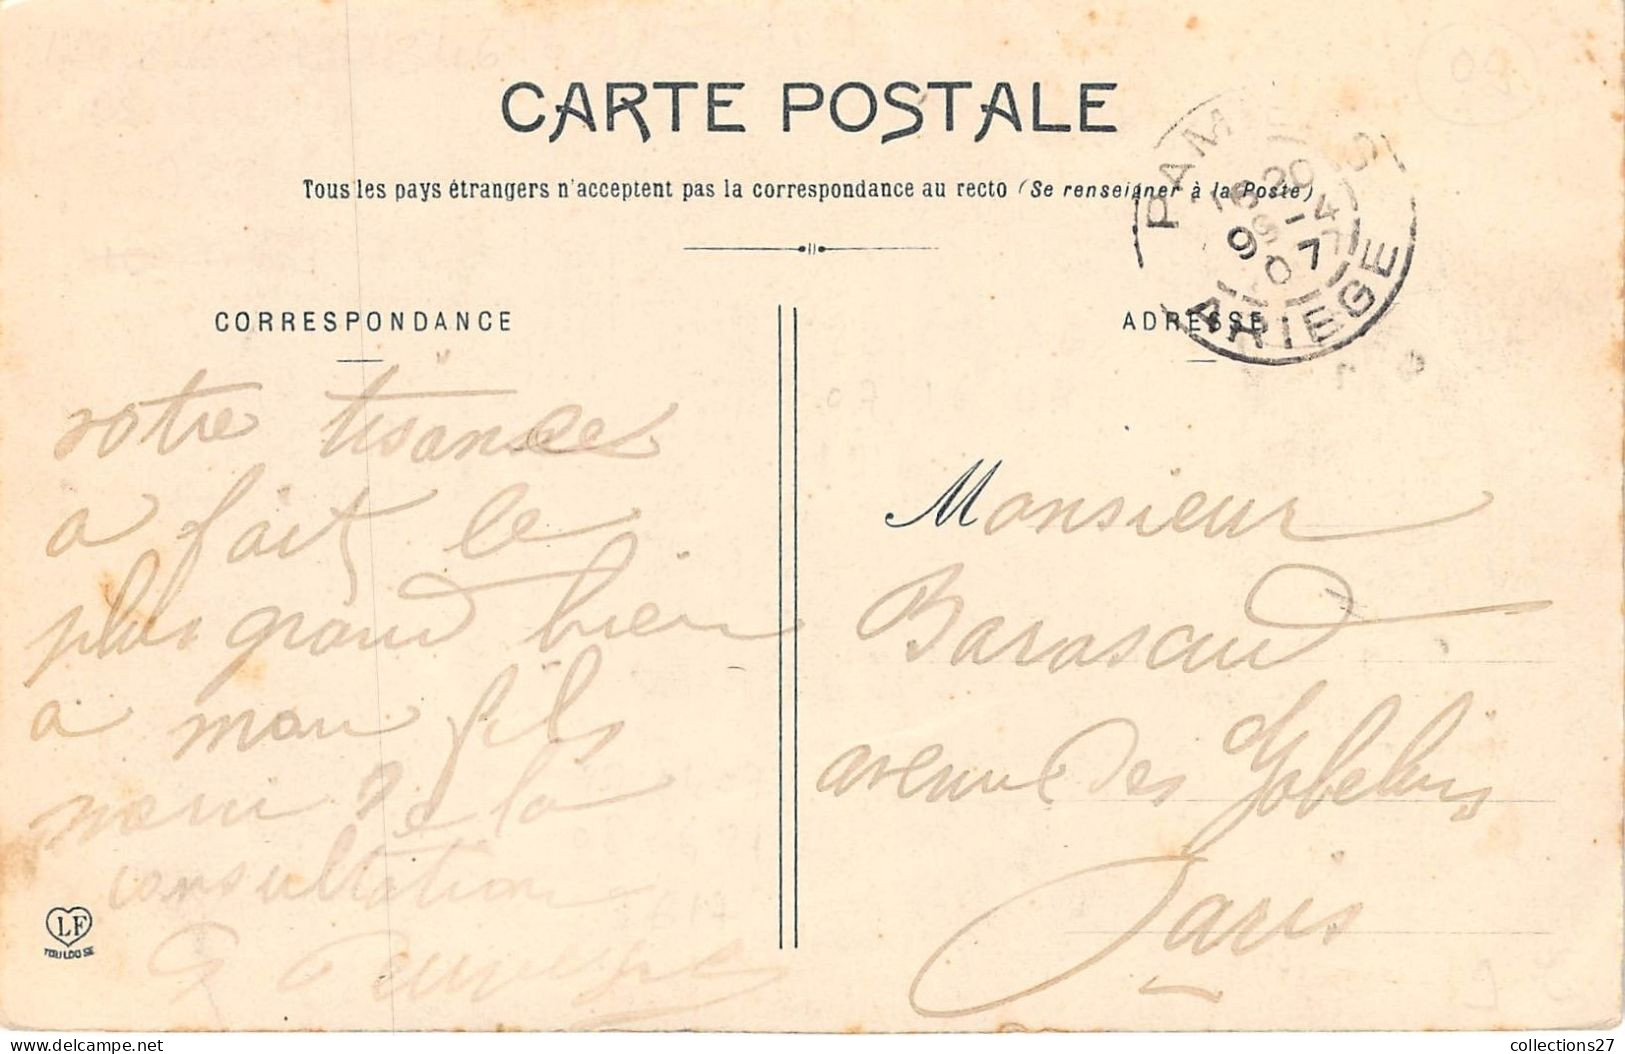 CARTE POSTALE
Tous les pays étrangers n'acceptent pas la correspondance au recto (Se renseigner à la Poste)
PAMIERS
16 20
9 -4
07
ARIEGE
CORRESPONDANCE
votre tisane
a fait le
plus grand bien
a mon fils
merci de la
consultation
LF
TOULOUSE
ADRESSE
Monsieur
Barascud
avenue des Gobelins
Paris
collections27